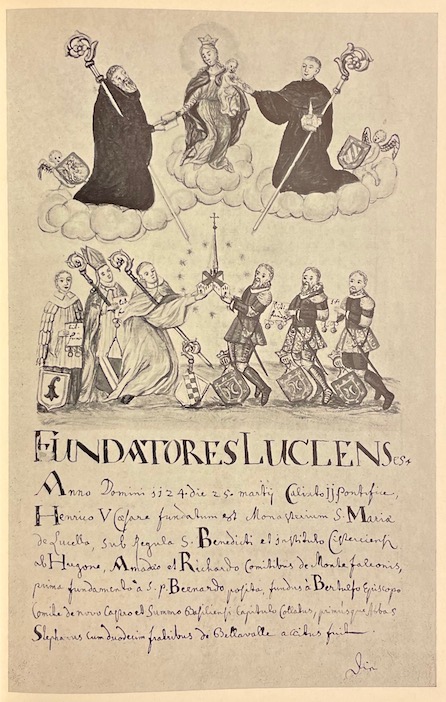 FUNDATORES LUCLENSES.
Anno Domini 1124. die 25. martij Calixto II Pontifice,
Henrico V Cæsare fundatum est Monasterium S. Mariæ
de Lucella, sub Regula S. Benedicti et instituto Cisterciensi,
ab Hugone, Amadeo et Richardo Comitibus de Monte falconis,
prima fundamenta à S. P. Bernardo posita, fundus à Bertulfo Episcopo
Comite de novo Castro et Summo Basiliensi Capitulo Collatus, primusque Abbas
Stephanus Cum duodecim fratribus de Bellavalle accitus fuit.